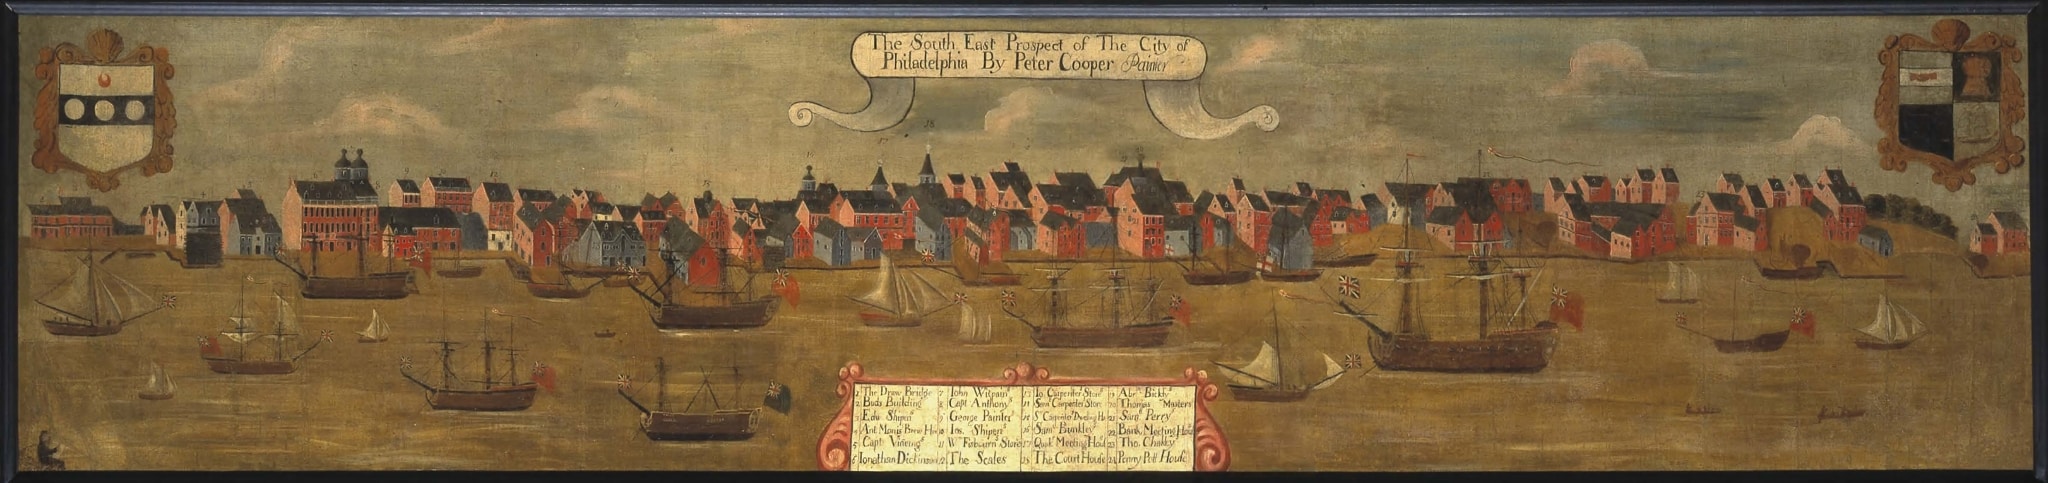 The South East Prospect of The City of
Philadelphia By Peter Cooper Painter
1 The Draw Bridge
2 Buds Building
3 Edw Shipen
4 Ant Moris Brew House
5 Capt Vineing
6 Jonathan Dickinson
7 John Witpain
8 Capt Anthony
9 George Painter
10 Jos. Shipen
11 W Fisbourn Store
12 The Scales
13 Jo Carpenter Store
14 Sam Carpenter Store
15 S Carpenter Dweling House
16 Sam Bunkley
17 Quak Meeting House
18 The Court House
19 Abr Bickly
20 Thomas Masters
21 Sarg Percy
22 Bank Meeting House
23 Tho Chakly
24 Penny Pott House